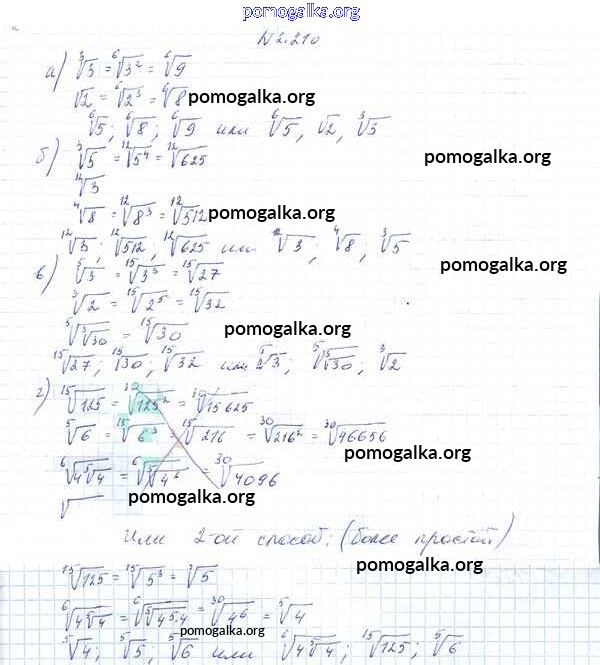 pomogalka.org
N2.210
а) ∛3 = ⁶√3² = ⁶√9
√2 = ⁶√2³ = ⁶√8 pomogalka.org
⁶√5; ⁶√8; ⁶√9 или ⁶√5, √2, ∛3
б) ∛5 = ¹²√5⁴ = ¹²√625 pomogalka.org
¹²√3
⁴√8 = ¹²√8³ = ¹²√512 pomogalka.org
¹²√3; ¹²√512, ¹²√625 или ¹²√3; ⁴√8; ∛5
в) ⁵√3 = ¹⁵√3³ = ¹⁵√27 pomogalka.org
∛2 = ¹⁵√2⁵ = ¹⁵√32
⁵√∛30 = ¹⁵√30 pomogalka.org
¹⁵√27; ¹⁵√30; ¹⁵√32 или ⁵√3; ⁵√∛30; ∛2
г) ¹⁵√125 = ³⁰√125² = ³⁰√15625
⁵√6 = ¹⁵√6³ = ¹⁵√216 = ³⁰√216² = ³⁰√46656
pomogalka.org
⁶√4⁵√4 = ⁶√⁵√4⁶ = ³⁰√4096
√ pomogalka.org
Или 2-ой способ: (более простой)
pomogalka.org
¹⁵√125 = ¹⁵√5³ = ⁵√5
⁶√4⁵√4 = ⁶√⁵√4⁵·4 = ³⁰√4⁶ = ⁵√4
pomogalka.org
⁵√4; ⁵√5; ⁵√6 или ⁶√4⁵√4; ¹⁵√125; ⁵√6